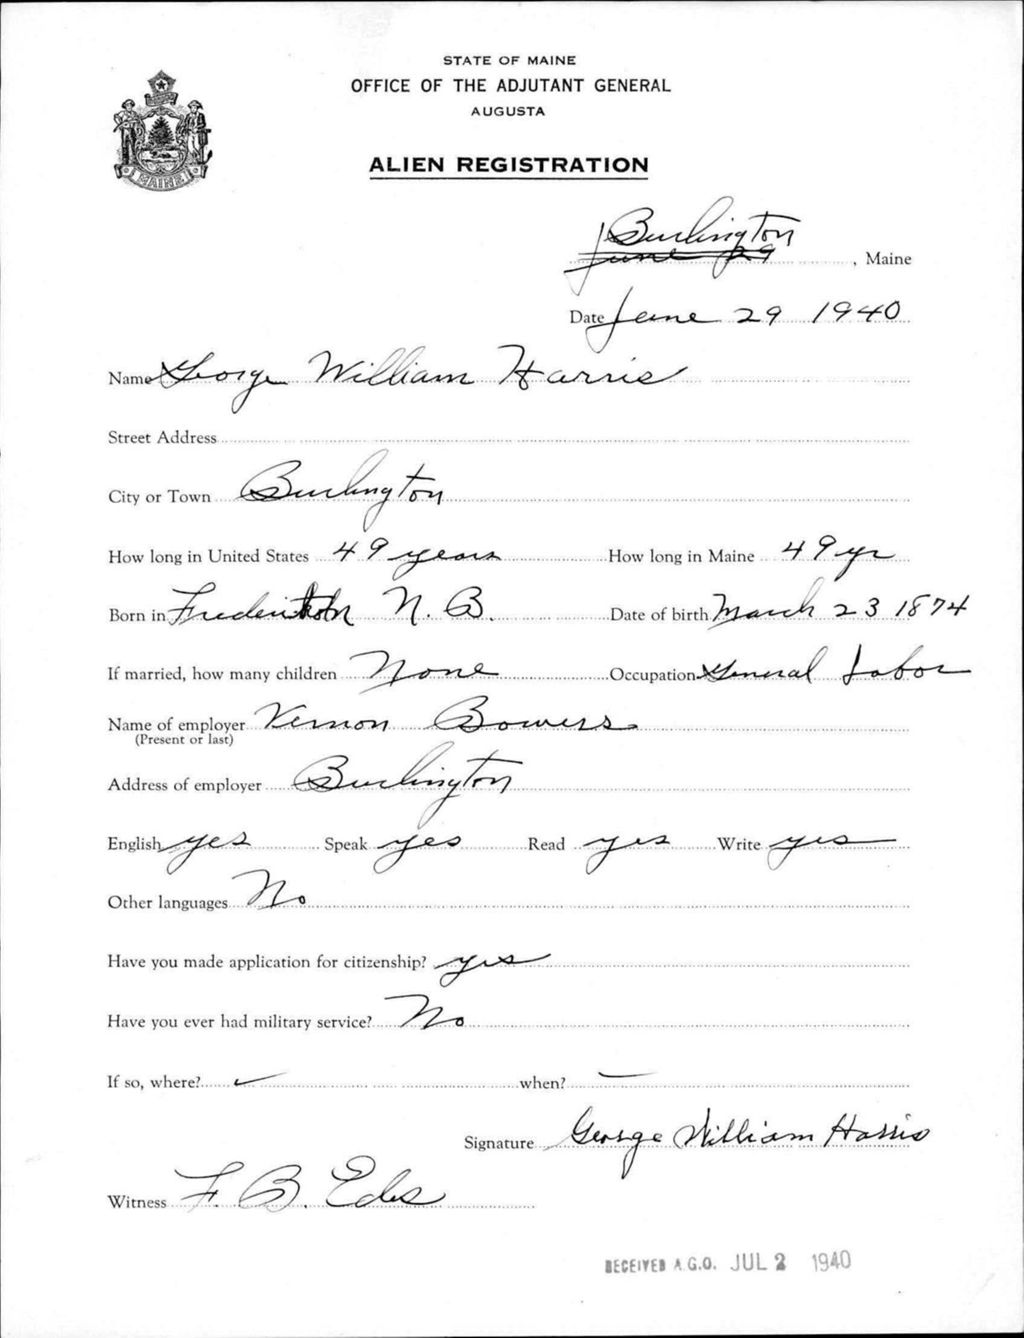 STATE OF MAINE
OFFICE OF THE ADJUTANT GENERAL
AUGUSTA
MAINE
ALIEN REGISTRATION
Burlington
June 29, Maine
Date June 29 1940
Name George William Harris
Street Address
City or Town Burlington
How long in United States 49 years How long in Maine 49 yr
Born in N. B. Date of birth March 23 1874
If married, how many children None Occupation General Labor
Name of employer Vernon Bowers
(Present or last)
Address of employer Burlington
English yes Speak yes Read yes Write yes
Other languages No
Have you made application for citizenship? yes
Have you ever had military service? No
If so, where? when? —
Signature George William Harris
Witness F. B.
RECEIVED A.G.O. JUL 2 1940